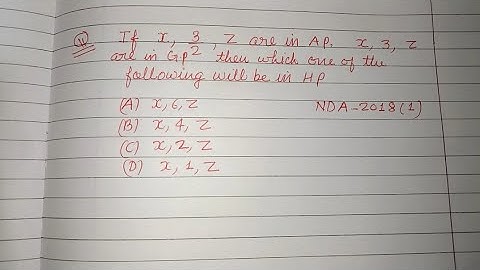 11 If x, 3/2, Z are in AP. x, 3, Z
are in GP then which one of the
following will be in HP
(A) x, 6, Z
NDA-2018(1)
(B) x, 4, Z
(C) x, 2, Z
(D) x, 1, Z